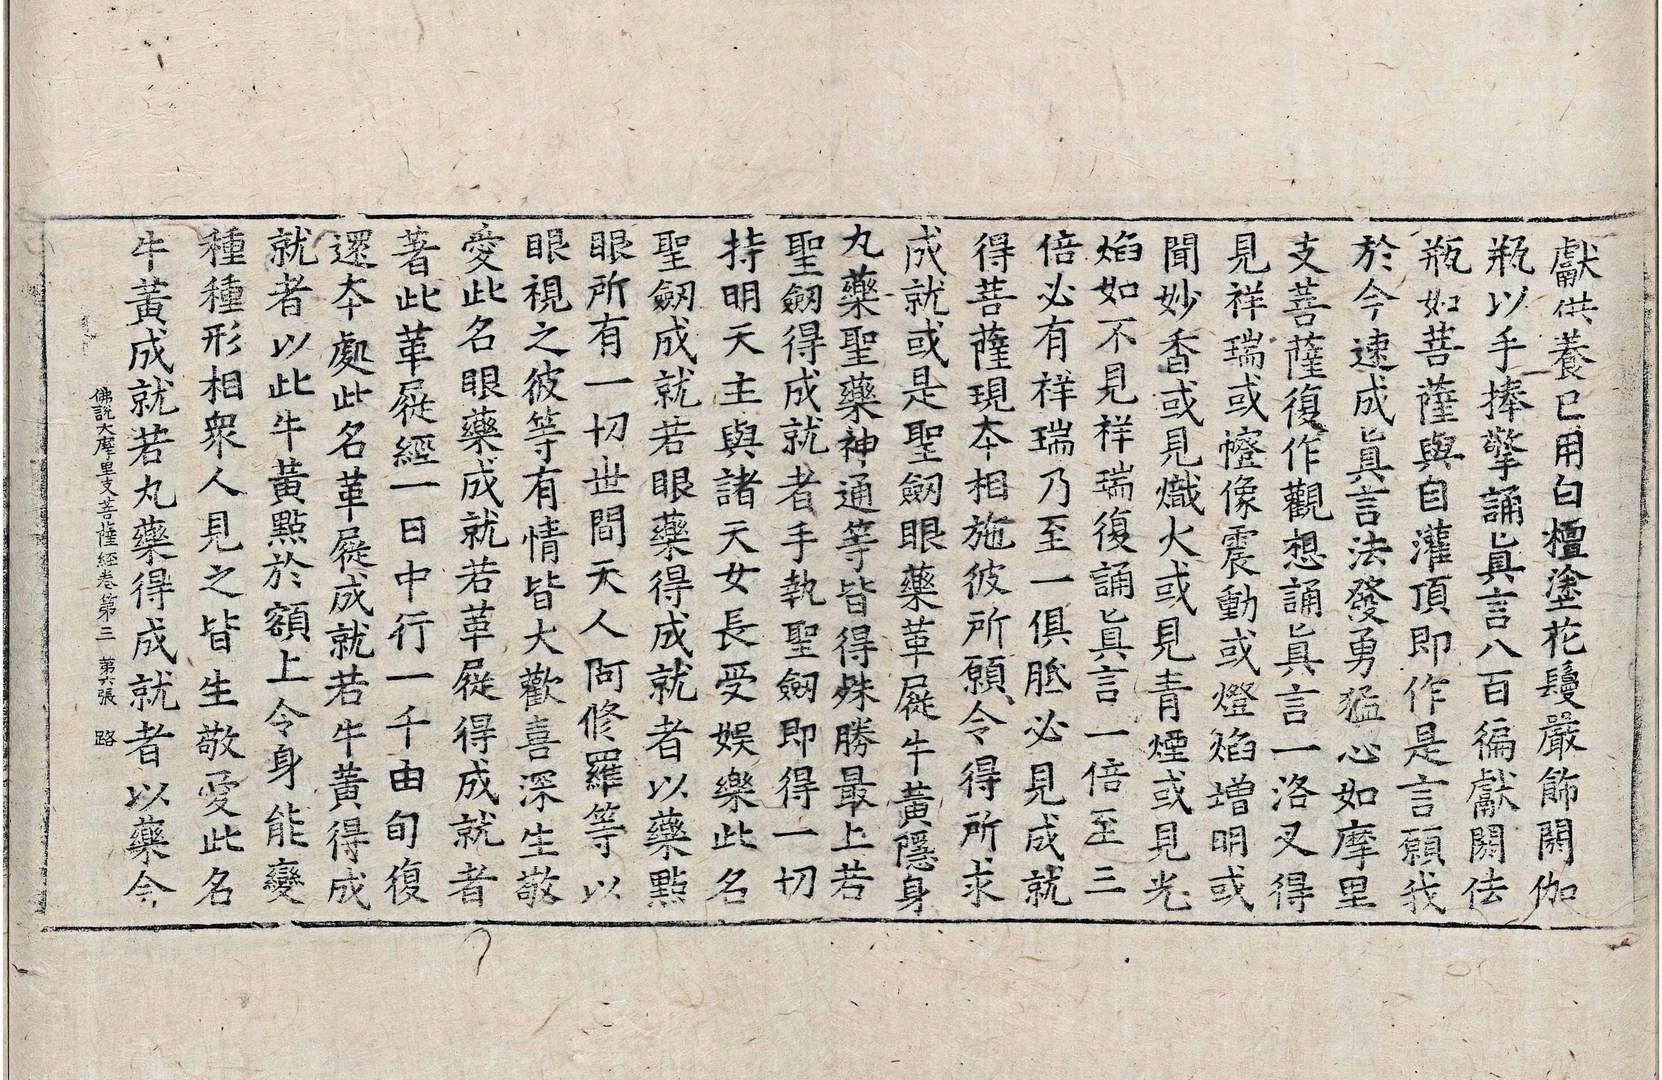 獻供養已用白檀塗花鬘嚴飾閼伽
瓶以手捧擎誦眞言八百徧獻閼伽
瓶如菩薩與自灌頂即作是言願我
於今速成眞言法發勇猛心如摩里
支菩薩復作觀想誦眞言一洛叉得
見祥瑞或幢像震動或燈焰增明或
聞妙香或見熾火或見青煙或見光
焰如不見祥瑞復誦眞言一倍至三
倍必有祥瑞乃至一俱胝必見成就
得菩薩現本相施彼所願令得所求
成就或是聖劒眼藥革屣牛黃隱身
丸藥聖藥神通等皆得殊勝最上若
聖劒得成就者手執聖劒即得一切
持明天主與諸天女長受娛樂此名
聖劒成就若眼藥得成就者以藥點
眼所有一切世間天人阿修羅等以
眼視之彼等有情皆大歡喜深生敬
愛此名眼藥成就若革屣得成就者
著此革屣經一日中行一千由旬復
還本處此名革屣成就若牛黃得成
就者以此牛黃點於額上令身能變
種種形相衆人見之皆生敬愛此名
牛黃成就若丸藥得成就者以藥令
佛說大摩里支菩薩經卷第三 第六張 路